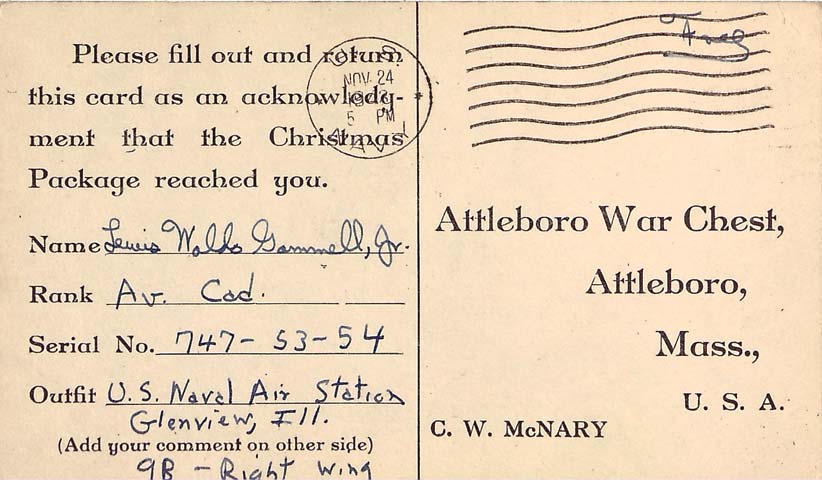 Please fill out and return
this card as an acknowledg-
ment that the Christmas
Package reached you.
Name Lewis Waldo Gammell, Jr.
Rank Av. Cad.
Serial No. 747-53-54
Outfit U.S. Naval Air Station
Glenview, Ill.
(Add your comment on other side)
9B - Right Wing
NOV 24
5 PM
Free
Attleboro War Chest,
Attleboro,
Mass.,
U. S. A.
C. W. McNARY